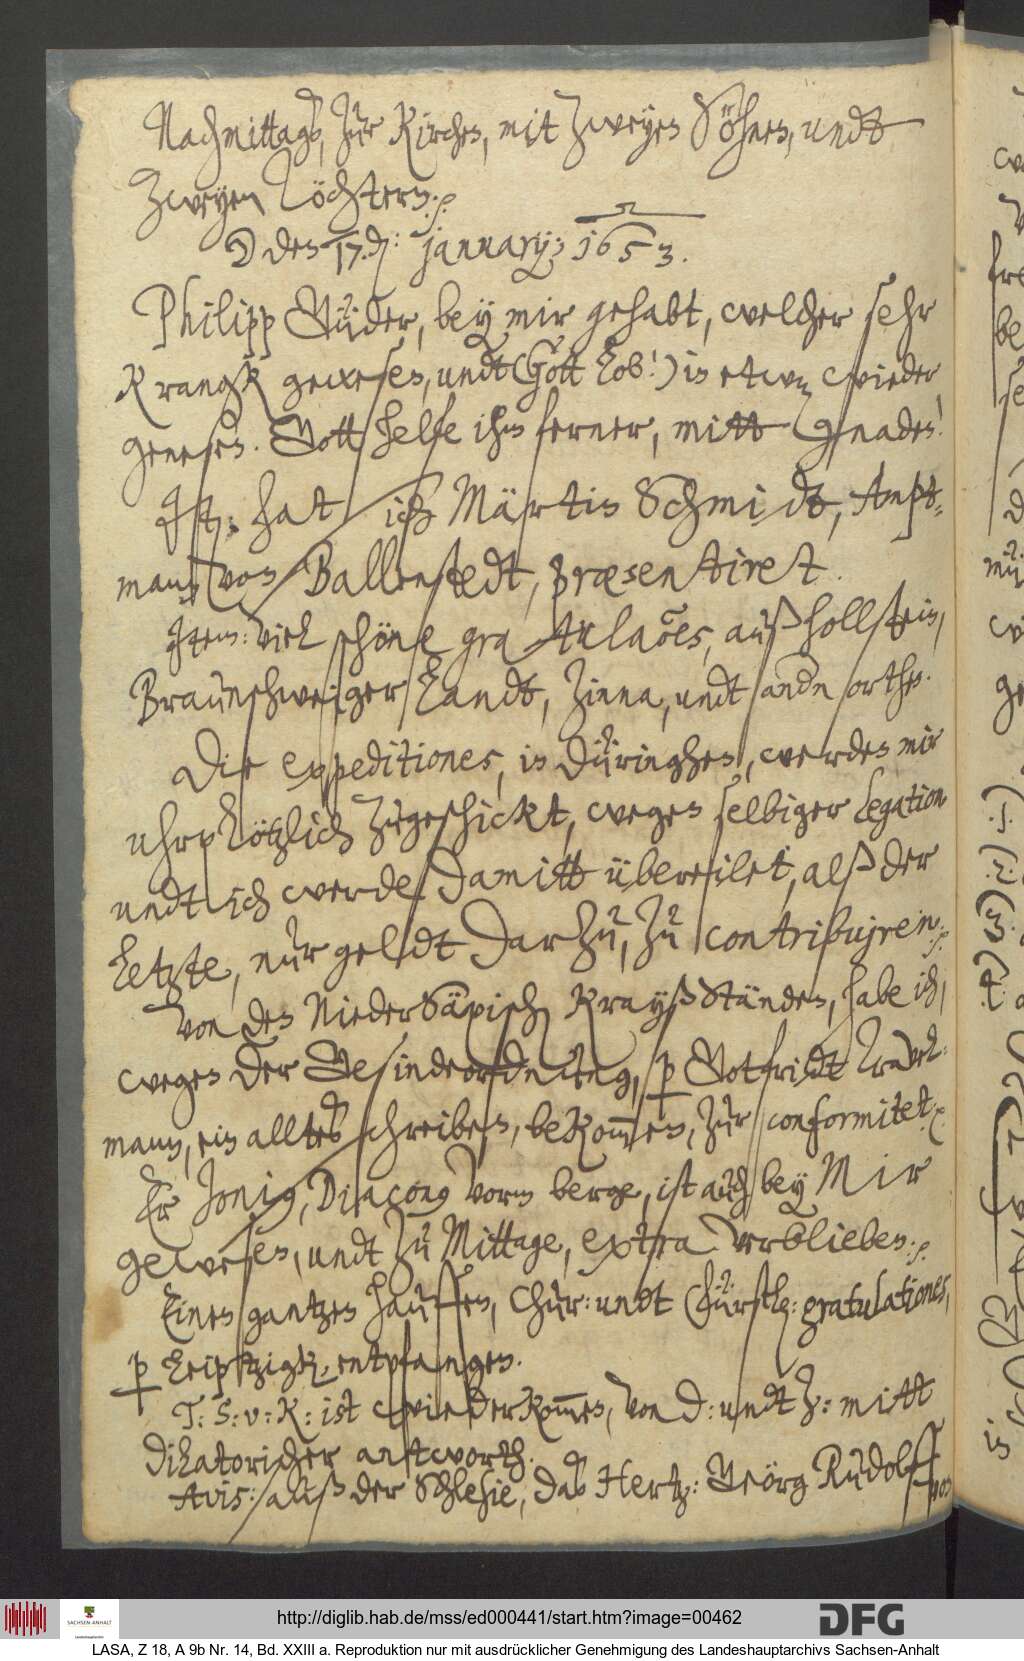 Nachmittags, zur Kirchen, mit zweyen Söhnen, undt
zweyen Töchtern.
☽ den 17. Januarij; 1653.
Philipp Güder, bey mir gehabt, welcher sehr
Krangk gewesen, undt (Gott Lob!) in etwz wieder
genesen. Gott helfe ihm ferner, mitt Gnaden!
It: hat sich Märtin Schmidt, Ampt-
mann von Ballenstedt, præsentiret.
Item: viel schöne gratulaões, auß hollstein,
Braunschweiger Landt, Zinna, undt andn orthen.
Die expeditiones, in Düringhen, werden mir
uhrplötzlich zugeschickt, wegen selbiger legation
undt ich werde damitt übereilet, alß der
letzte, nur geldt darzu, zu contribujren.
Von den NiederSäxisch Krayß Ständen, habe ich,
wegen der Gesindeordnung, p Gotfridt
mann, ein alltes schreiben, bekommen, zur conformitet.
Er Jonig, Diacong vorm berge, ist auch bey Mir
gewesen, undt zu Mittage, extra verblieben.
Einen gantzen hauffen, Chur: undt Fürstl: gratulationes,
p Leiptzigk, entpfangen.
T: S: v: K: ist wiederkommen, von D: undt Z: mitt
dilatorischer anftworth.
Avis: auß der Schlesie, das Hertz: Geörg Rudolff von
http://diglib.hab.de/mss/ed000441/start.htm?image=00462
DFG
SACHSEN-ANHALT
LASA, Z 18, A 9b Nr. 14, Bd. XXIII a. Reproduktion nur mit ausdrücklicher Genehmigung des Landeshauptarchivs Sachsen-Anhalt